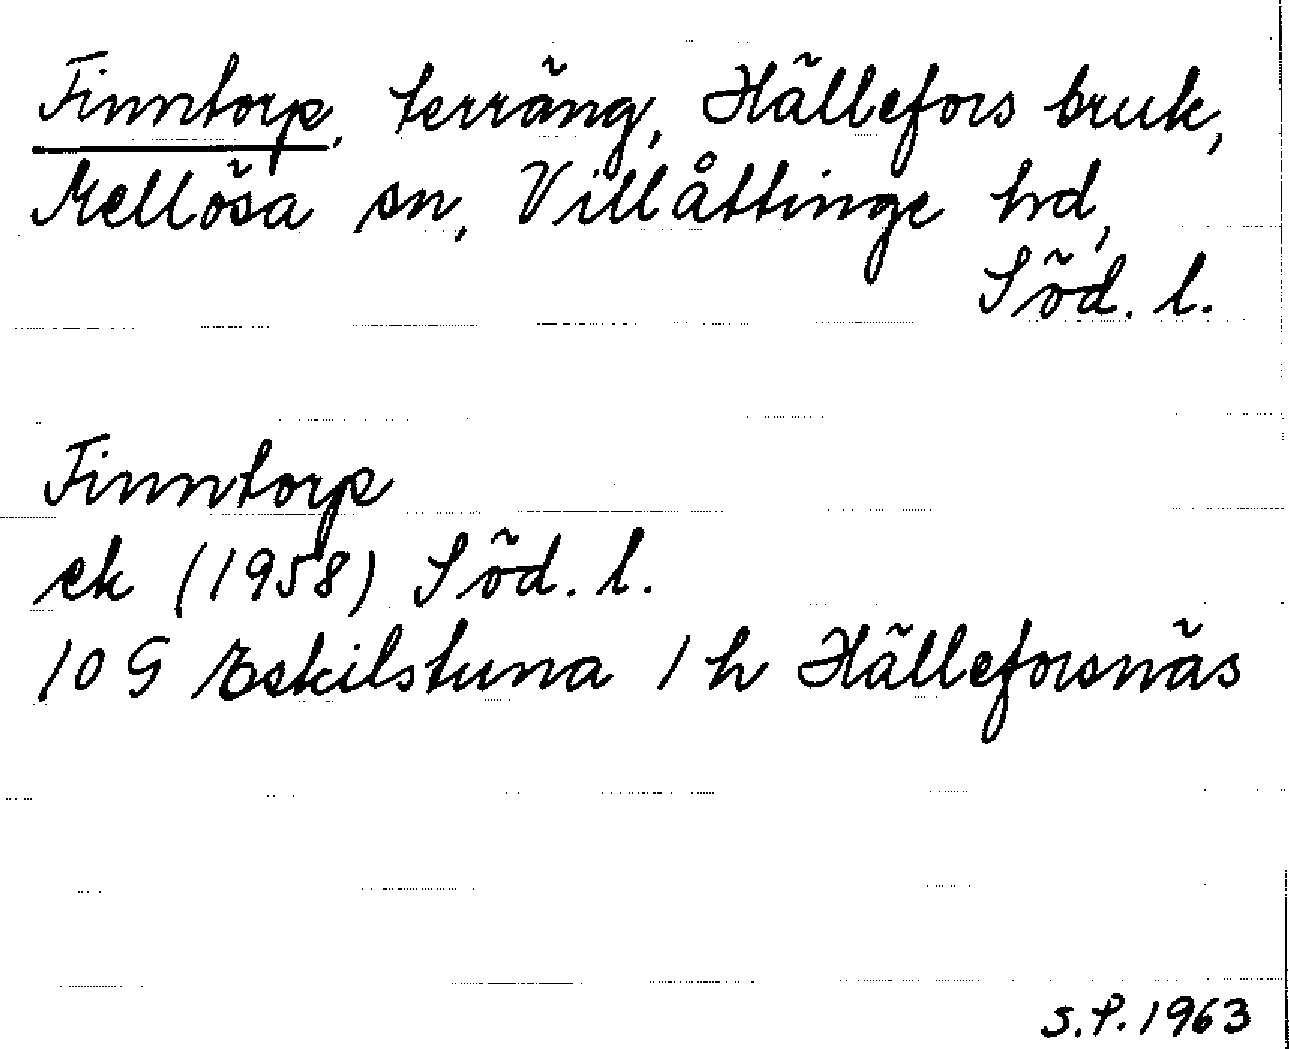 Finntorp, terräng, Hällefors bruk,
Mellösa sn, Villåttinge hd,
Söd. l.
Finntorp
ek (1958) Söd. l.
10 G Eskilstuna 1 h Hälleforsnäs
S.P. 1963